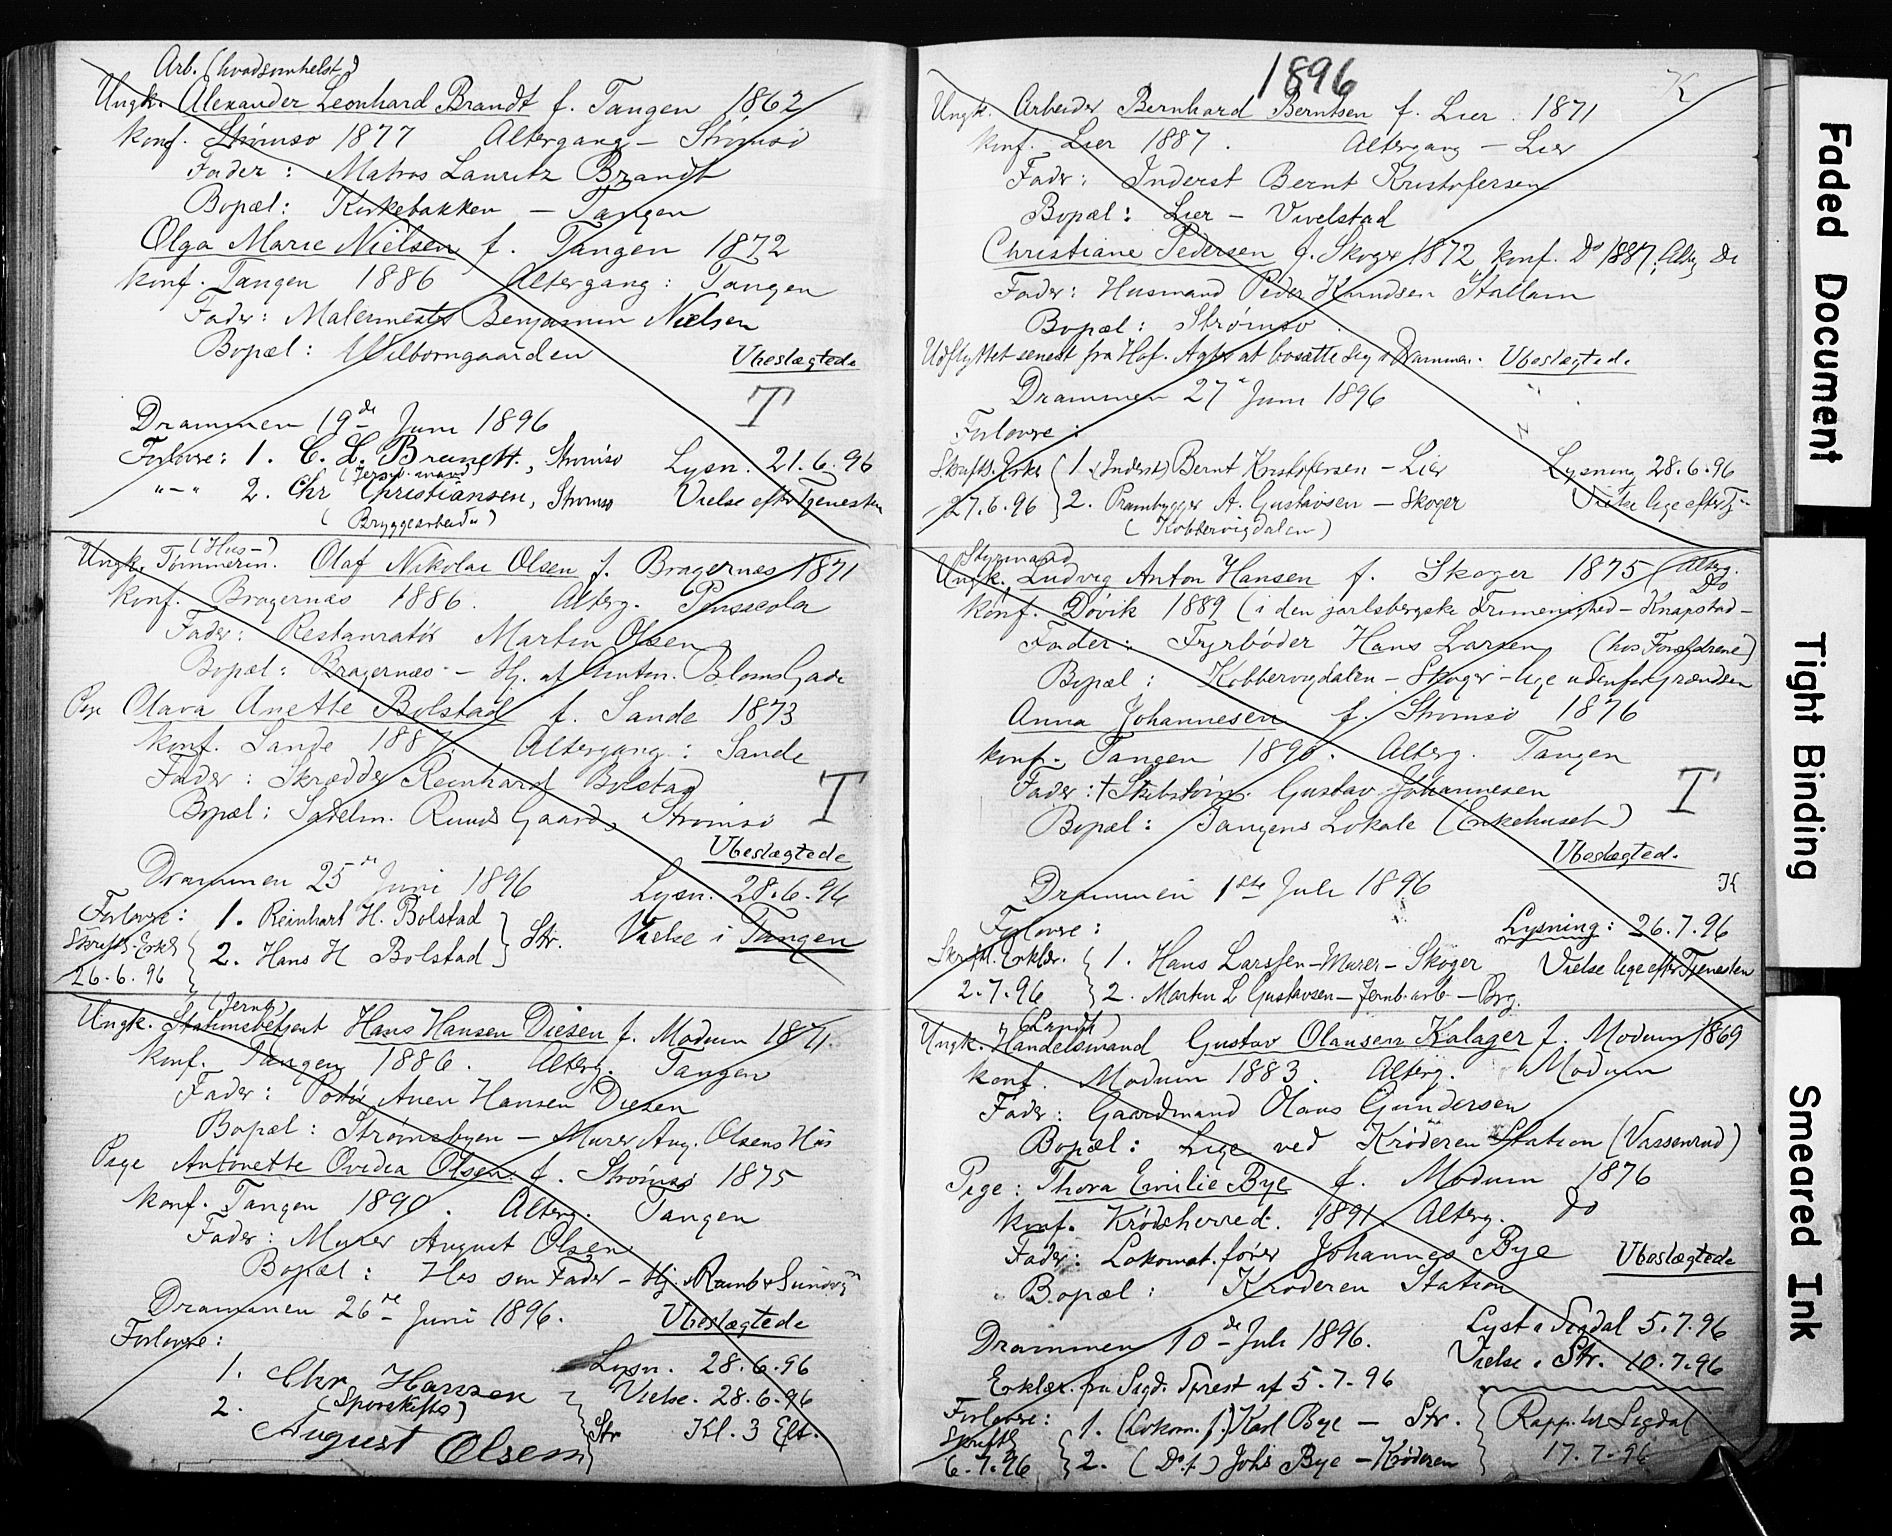 Arb. (hvadsomhelst)
Ungk. Alexander Leonhard Brandt f. Tangen 1862
konf. Strømsø 1877 Altergang – Strømsø
Fader: Matros Lauritz Brandt
Bopæl: Kirkebakken – Tangen
Olga Marie Nielsen f. Tangen 1872
konf. Tangen 1886 Altergang: Tangen
Fader: Malermester Benjamin Nielsen
Bopæl: Wilborngaarden Ubeslægtede
T
Drammen 19de Juni 1896
Forlovre: 1. C. L. Brandt, Strømsø Lysn. 21.6.96
"–" 2. Chr Christiansen, Strømsø Vielse efter Tjenesten
(Bryggearbeider)
(Hus-)
Ungk. Tømmerm. Olaf Nikolai Olsen f. Bragernæs 1871
konf. Bragernæs 1886. Alterg.
Fader: Restauratør Martin Olsen
Bopæl: Bragernæs – Hj. af Anton. Bloms Gade
Pige Olava Anette Bolstad f. Sande 1873
konf. Sande 1887. Altergang: Sande
Fader: Skrædder Reinhard Bolstad
Bopæl: Sadelm. Ruuds Gaard, Strømsø T
Ubeslægtede
Drammen 25de Juni 1896 Lysn. 28.6.96
Forlovre: 1. Reinhart H. Bolstad
Skriftl. Erkl. 2. Hans H Bolstad Str. Vielse i Tangen
26.6.96
(Jernb)
Ungk. Stationsbetjent Hans Hansen Diesen f. Modum 1871.
konf. Tangen 1886. Alterg. Tangen
Fader: Hansen Diesen
Bopæl: Strømsbyen – Murer Aug. Olsens Hus
Pige Antonette Ovedia Olsen f. Strømsø 1875
konf. Tangen 1890. Alterg. Tangen
Fader: Murer August Olsen
Bopæl: Hos sin Fader – Hj.
Drammen 26de Juni 1896. Ubeslægtede
Forlovre:
1. Chr Hansen Lysn. 28.6.96
(Sporskifter) Vielse. 28.6.96
2. August Olsen Str Kl. 3 Eft.
1896
K
Ungk. Arbeider Bernhard Berntsen f. Lier. 1871
konf. Lier 1887. Altergang – Lier
Fader: Inderst Bernt Kristofersen
Bopæl: Lier – Vivelstad
Christiane Pedersen f. Skoger 1872 konf. Do 1887. Altg Do
Fader: Husmand Peder Knudsen Stallam
Bopæl: Strømsø.
Udflyttet senest fra Hof. Agter at bosætte sig i Drammen. Ubeslægtede.
Drammen 27 Juni 1896
Forlovre:
Skriftl. Erkl. 1. (Inderst) Bernt Kristofersen – Lier Lysning 28.6.96
27.6.96 2. Prambygger A. Gustavsen – Skoger Vielse lige efter Tj
(Kobbervigdalen)
Styrmand
Ungk. Ludvig Anton Hansen f. Skoger 1875 (Alterg. Do
konf. Døvik 1889 (i den jarlsbergske Frimenighed – Knapstad –
Fader: Fyrbøder Hans Larsen (hos Forældrene)
Bopæl: Kobbervigdalen – Skoger – lige udenfor Grændsen
Anna Johannesen f. Strømsø 1876
konf. Tangen 1890. Alterg. Tangen
Fader: † Skibstøm. Gustav Johannesen T
Bopæl: Tangens Lokale (Enkehuset)
Ubeslægted.
Drammen 1ste Juli 1896 K
Forlovre: Lysning: 26.7.96
Skriftl. Erklær. 1. Hans Larssen – Murer – Skoger Vielse lige efter Tjenesten
2.7.96 2. Martin L Gustavsen – Jernb. arb – Brg.
(Landh)
Ungk. Handelsmand Gustav Olausen Kalager f. Modum 1869
konf. Modum 1883. Alterg. Modum
Fader: Gaardmand Olaus Gundersen
Bopæl: Lige ved Krøderen Station (Vassenrud)
Pige: Thora Emilie Bye f. Modum 1876
konf. Krødsherred. 1891. Alterg. do
Fader: Lokomot.fører Johannes Bye Ubeslægtede
Bopæl: Krøderen Station
Drammen 10de Juli 1896. Lyst i Sigdal 5.7.96
Vielse i Str. 10.7.96
Erklær. fra Sigd. Sprest af 5.7.96
Forlovre: 1. (Lokom. f.) Karl Bye – Str. Rapp. til Sigdal
Skriftl 6.7.96 2. (Do f.) Johs Bye – Krøderen 17.7.96
Faded Document
Tight Binding
Smeared Ink